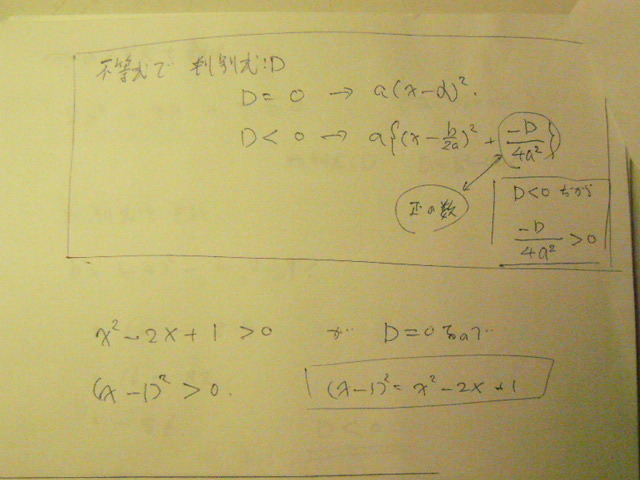 不等式で 判別式:D
D = 0 → a(x-α)².
D < 0 → a{(x - b/2a)² + -D/4a²}
正の数
D<0 だから
-D/4a² > 0
x² - 2x + 1 > 0 D=0なので
(x - 1)² > 0.
(x-1)² = x² - 2x + 1